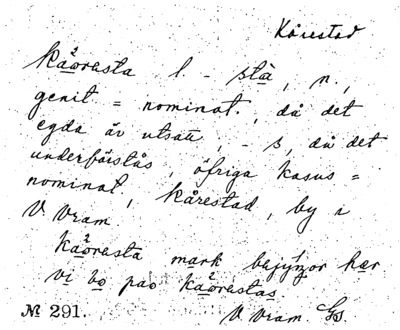 Kårestad
kåorasta l. - stà, n.,
genit = nominat., då det
egda är utsatt, - s, då det
underförstås, öfriga kasus =
nominat, Kårestad, by i
V Vram
kåorasta mark bejýnzor hær
vi bo pao kåorastas
V Vram Gs.
№ 291.